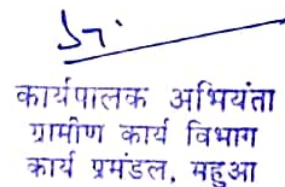 कार्यपालक अभियंता
ग्रामीण कार्य विभाग
कार्य प्रमंडल, महुआ